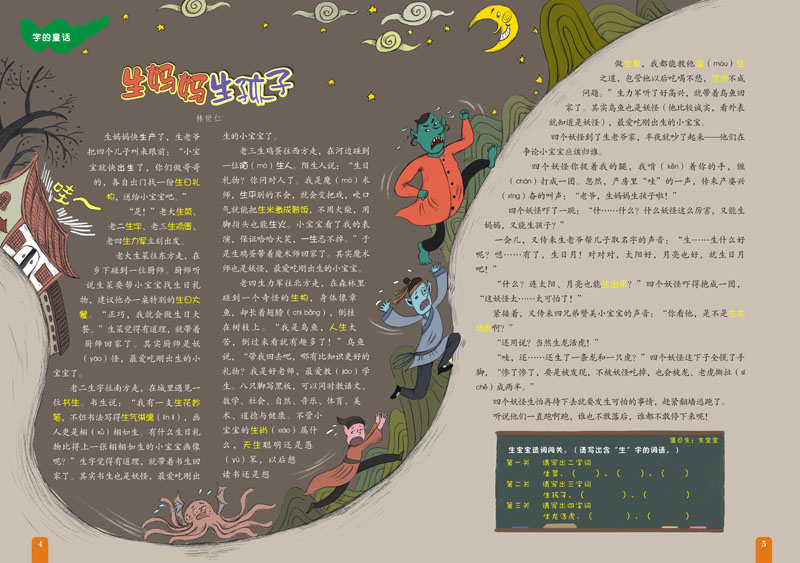 字的童话
生妈妈生孩子
林世仁
生妈妈快生产了，生老爷
把四个儿子叫来跟前：“小宝
宝就快出生了，你们做哥哥
的，各自出门找一份生日礼
物，送给小宝宝吧。”
“是！”老大生菜、
老二生字、老三生鸡蛋、
老四生力军立刻出发。
老大生菜往东方走，在
乡下碰到一位厨师。厨师听
说生菜要帮小宝宝找生日礼
物，建议他办一桌特别的生日大
餐。“正巧，我就会做生日大
餐。”生菜觉得有道理，就带着
厨师回家了。其实厨师是妖
（yāo）怪，最爱吃刚出生的小
宝宝了。
老二生字往南方走，在城里遇见一
位书生。书生说：“我有一支生花妙
笔，不但书法写得生气淋漓（lín lí），画
人更是相（xǔ）相如生。有什么生日礼
物比得上一张相相如生的小宝宝画像
呢？”生字觉得有道理，就带着书生回
家了。其实书生也是妖怪，最爱吃刚出
生的小宝宝了。
老三生鸡蛋往西方走，在河边碰到
一位陌（mò）生人。陌生人说：“生日
礼物？你问对人了。我是魔（mó）术
师，生平别的不会，就会变把戏，吹口
气就能把生米煮成熟饭，不用火柴，用
脚指头也能生火。小宝宝看了我的表
演，保证哈哈大笑，一生忘不掉。”于
是生鸡蛋带着魔术师回家了。其实魔术
师也是妖怪，最爱吃刚出生的小宝宝。
老四生力军往北方走，在森林里
碰到一个奇怪的生物，身体像章
鱼，却长着翅膀（chì bǎng），倒挂
在树枝上。“我是鸟鱼，人生太
苦，倒过来看就有趣多了！”鸟鱼
说，“带我回去吧，哪有比知识更好的
礼物？我是好老师，最爱教（jiāo）学
生。八只脚写黑板，可以同时教语文、
数学、社会、自然、音乐、体育、美
术、道德与健康。不管小
宝宝的生肖（xiào）属什
么，天生聪明还是愚
（yú）笨，以后想
读书还是想
做生意，我都能教他谋（móu）生
之道，包管他以后吃喝不愁，生活不成
问题。”生力军听了好高兴，就带着鸟鱼回
家了。其实鸟鱼也是妖怪（他比较诚实，看外表
就知道是妖怪），最爱吃刚出生的小宝宝。
四个妖怪到了生老爷家，半夜就吵了起来——他们在
争论小宝宝应该归谁。
四个妖怪你捉着我的腿，我啃（kěn）着你的手，缠
（chán）打成一团。忽然，产房里“哇”的一声，传来产婆兴
（xīng）奋的叫声：“老爷，生妈妈生孩子啦！”
四个妖怪吓了一跳：“什……什么？什么妖怪这么厉害，又能生
妈妈，又能生孩子？”
一会儿，又传来生老爷帮儿子取名字的声音：“生……生什么好
呢？嗯……有了，生日月！对对对，太阳好，月亮也好，就生日月
吧！”
“什么？连太阳、月亮也能生出来？”四个妖怪吓得抱成一团，
“这妖怪太……太可怕了！”
紧接着，又传来四兄弟赞美小宝宝的声音：“你看他，是不是生龙
活虎啊？”
“还用说？当然生龙活虎！”
“哇，还……还生了一条龙和一只虎？”四个妖怪这下子全慌了手
脚，“惨了惨了，要是被发现，不被妖怪吃掉，也会被龙、老虎撕扯（sī
chě）成两半。”
四个妖怪怕再待下去就要发生可怕的事情，赶紧翻墙逃跑了。
听说他们一直跑啊跑，谁也不敢落后，谁都不敢停下来呢！
哇~
值日生：生宝宝
生宝宝造词闯关。（请写出含“生”字的词语。）
第一关 请写出二字词
生菜、（ ）、（ ）、（ ）
第二关 请写出三字词
生孩子、（ ）、（ ）
第三关 请写出四字词
生龙活虎、（ ）、（ ）
4
5